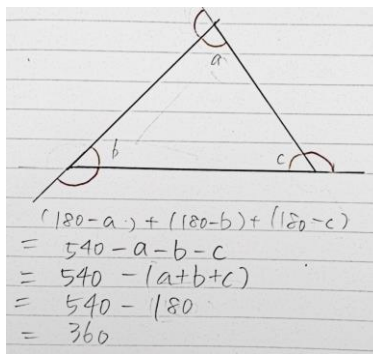 a
b
c
(180-a) + (180-b) + (180-c)
= 540-a-b-c
= 540 - (a+b+c)
= 540 - 180
= 360